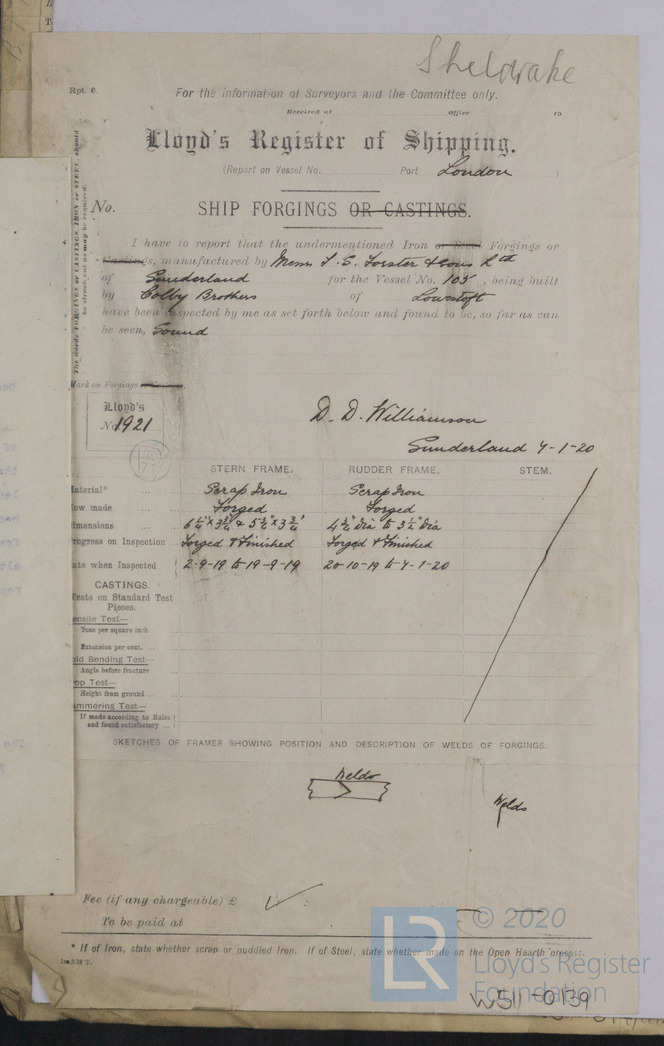 Sheldrake
Rpt. 6.
For the information of Surveyors and the Committee only.
Received at Office 19
Lloyd's Register of Shipping.
(Report on Vessel No. Port London )
No. SHIP FORGINGS OR CASTINGS.
The words FORGINGS or CASTINGS, IRON or STEEL, should
be struck out as may be required.
I have to report that the undermentioned Iron or Steel Forgings or
Castings, manufactured by Messrs T. S. Forster & Sons Ltd
of Sunderland for the Vessel No. 105, being built
by Colby Brothers of Lowestoft
have been inspected by me as set forth below and found to be, so far as can
be seen, Sound
Mark on Forgings
Lloyd's
No 1921
D. D. Williamson
Sunderland 4-1-20
STERN FRAME. RUDDER FRAME. STEM.
Material* Scrap Iron Scrap Iron
How made Forged Forged
Dimensions
Progress on Inspection Forged & Finished Forged & Finished
Date when Inspected 2-9-19 to 19-9-19 20-10-19 to 4-1-20
CASTINGS.
Tests on Standard Test
Pieces.
ensile Test—
Tons per square inch
Extension per cent.
old Bending Test—
Angle before fracture
op Test—
Height from ground
ammering Test—
If made according to Rules
and found satisfactory
SKETCHES OF FRAMES SHOWING POSITION AND DESCRIPTION OF WELDS OF FORGINGS.
Welds
Welds
Fee (if any chargeable) £ :
To be paid at
© 2020
* If of Iron, state whether scrap or puddled Iron. If of Steel, state whether made on the Open Hearth process.
LR
Lloyd's Register
Foundation
W511-0139